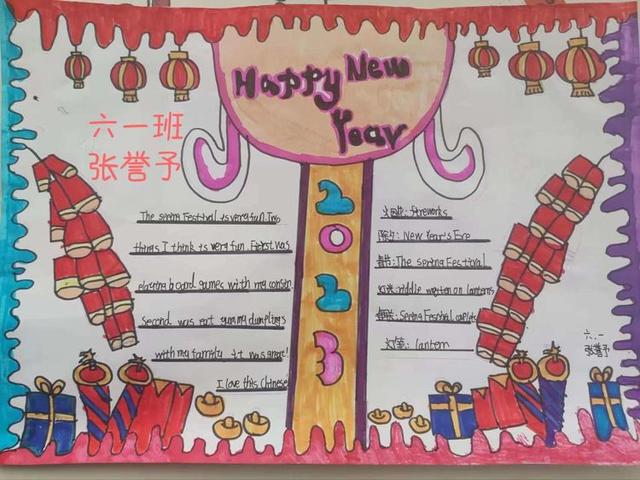 Happy New
Year
六一班
张誉予
2023
The spring Festival is very fun. Two
things I think is very fun. First was
board games with my cousin.
Second was eat yummy dumplings
with my family. It was great!
I love this Chinese
: fireworks
除夕: New Year's Eve
春节: The spring Festival
: riddle written on lanterns
: Spring Festival
灯笼: lantern
六.一
张誉予